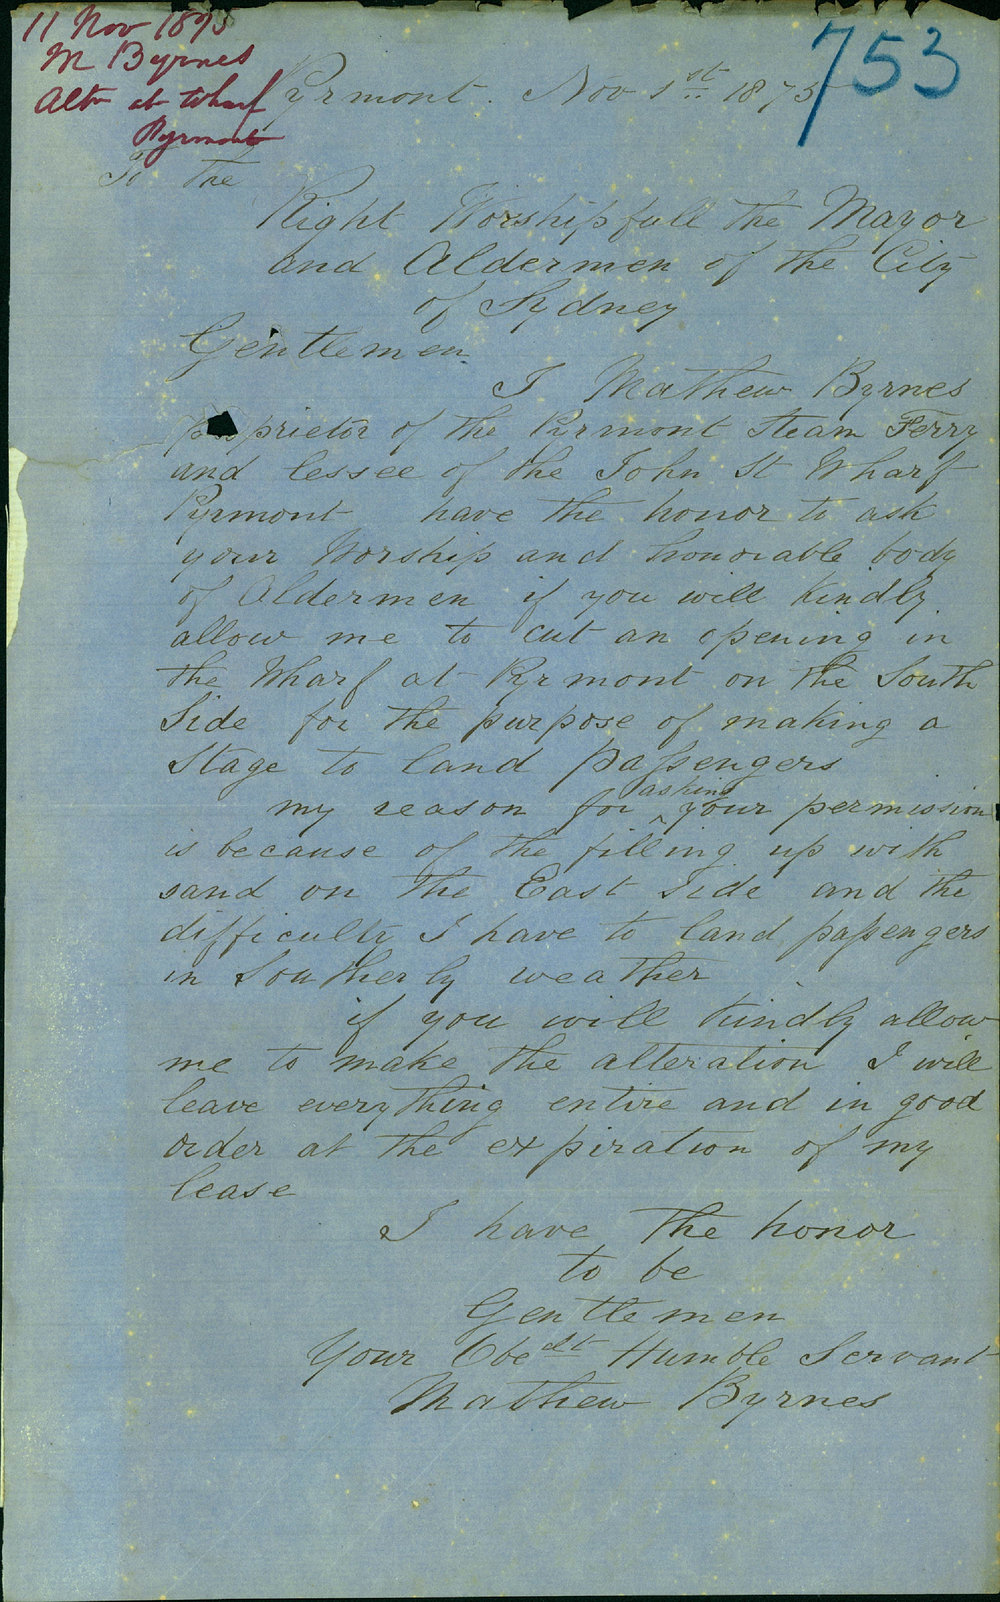 11 Nov 1875
M Byrnes
Altn at Wharf
Pyrmont
753
Pyrmont. Nov 1st 1875
To The
Right Worshipfull the Mayor
and Aldermen of the City
of Sydney
Gentlemen
I Mathew Byrnes
proprietor of the Pyrmont Steam Ferry
and lessee of the John St Wharf
Pyrmont have the honor to ask
your Worship and honorable body
of Aldermen if you will Kindly
allow me to cut an opening in
the Wharf at Pyrmont on the South
Side for the purpose of making a
Stage to land passengers
my reason for ^asking your permission
is because of the filling up with
sand on the East Side and the
difficulty I have to land passengers
in Southerly weather
if you will kindly allow
me to make the alteration I will
leave everything entire and in good
order at the expiration of my
lease
I have the honor
to be
Gentlemen
Your Obedt Humble Servant
Mathew Byrnes